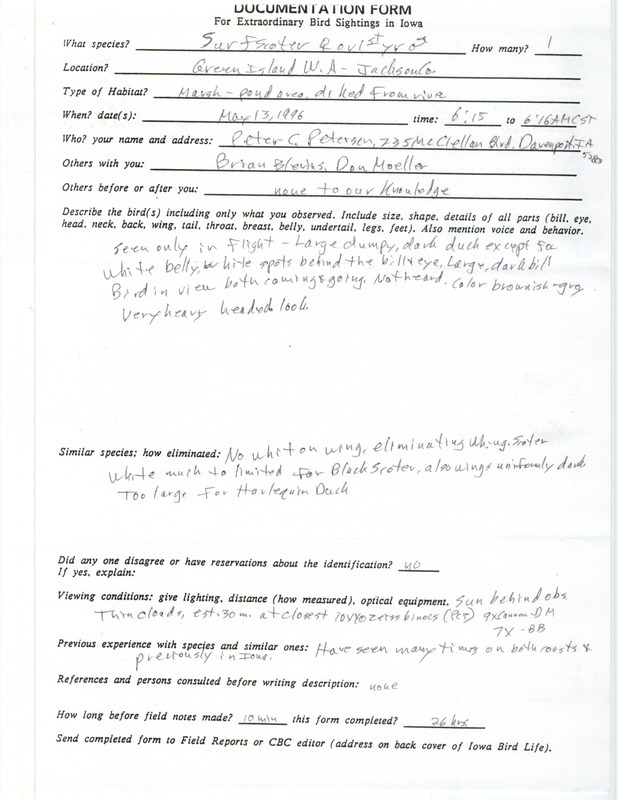 DOCUMENTATION FORM
For Extraordinary Bird Sightings in Iowa
What species? Surf Scoter ♀ or 1st yr ♂ How many? 1
Location? Green Island W.A - Jackson Co
Type of Habitat? Marsh - pond area, diked from river
When? date(s): May 13, 1996 time: 6:15 to 6:16 AM CST
Who? your name and address: Peter C. Petersen, 235 McClellan Blvd, Davenport, IA
Others with you: Brian Blevins, Don Moeller
Others before or after you: none to our knowledge
Describe the bird(s) including only what you observed. Include size, shape, details of all parts (bill, eye,
head, neck, back, wing, tail, throat, breast, belly, undertail, legs, feet). Also mention voice and behavior.
Seen only in flight - Large dumpy, dark duck except for
white belly, white spots behind the bill & eye, Large, dark bill
Bird in view both coming & going. Not heard. Color brownish-gray.
Very heavy headed look.
Similar species; how eliminated: No whit on wing, eliminating Wh-wg. Scoter
White much to limited for Black Scoter, also wings uniformly dark.
Too large for Harlequin Duck
Did any one disagree or have reservations about the identification? no
If yes, explain:
Viewing conditions: give lighting, distance (how measured), optical equipment. Sun behind obs.
Thin clouds, est. 30 m. at closest 10x40 zeiss binocs (PCP) 9x Cannon-DM
7X - BB
Previous experience with species and similar ones: Have seen many times on both coasts &
previously in Iowa.
References and persons consulted before writing description: none
How long before field notes made? 10 min this form completed? 26 hrs
Send completed form to Field Reports or CBC editor (address on back cover of Iowa Bird Life).